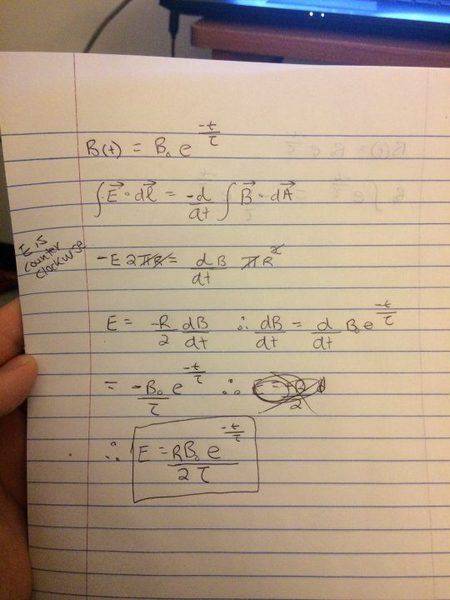 B(t) = B₀ e^(-t/τ)
∫ E⃗ · dℓ⃗ = -d/dt ∫ B⃗ · dA⃗
E is
counter
clockwise
-E 2πR = d/dt B πR²
E = -R/2 dB/dt ∴ dB/dt = d/dt B₀ e^(-t/τ)
= -B₀/τ e^(-t/τ) ∴
∴ E = RB₀ e^(-t/τ) / 2τ